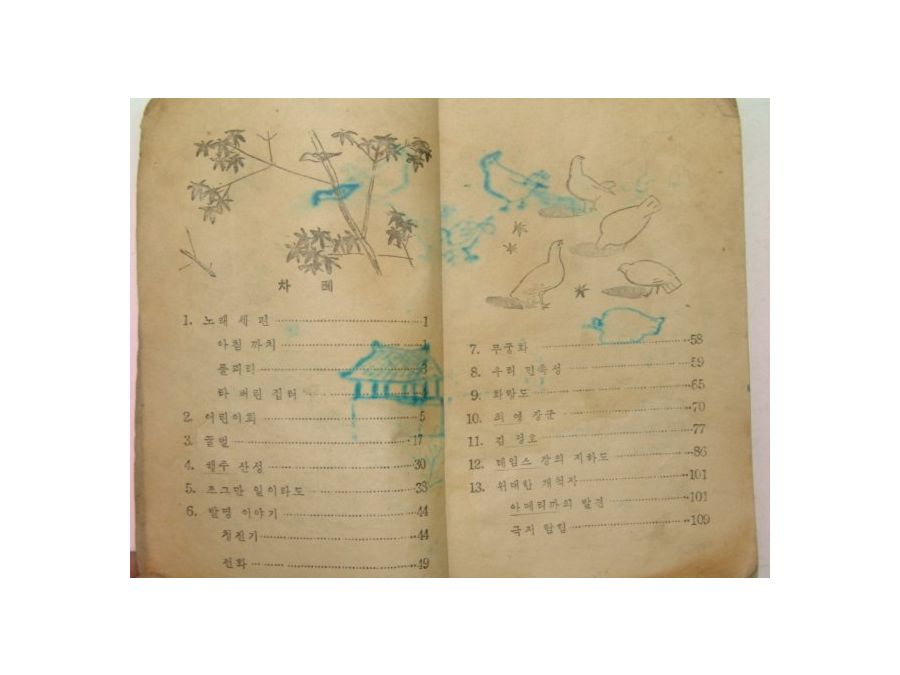 차 례
1. 노래 세 편 1
아침 까치 1
풀피리 3
타 버린 집터
2. 어린이회 5
3. 꿀벌 17
4. 행주 산성 30
5. 조그만 일이라도 33
6. 발명 이야기 44
청진기 44
전화 49
7. 무궁화 58
8. 우리 민족성 59
9. 희망도 65
10. 최 영 장군 70
11. 김 정호 77
12. 테임스 강의 지하도 86
13. 위대한 개척자 101
아메리까의 발견 101
극지 탐험 109